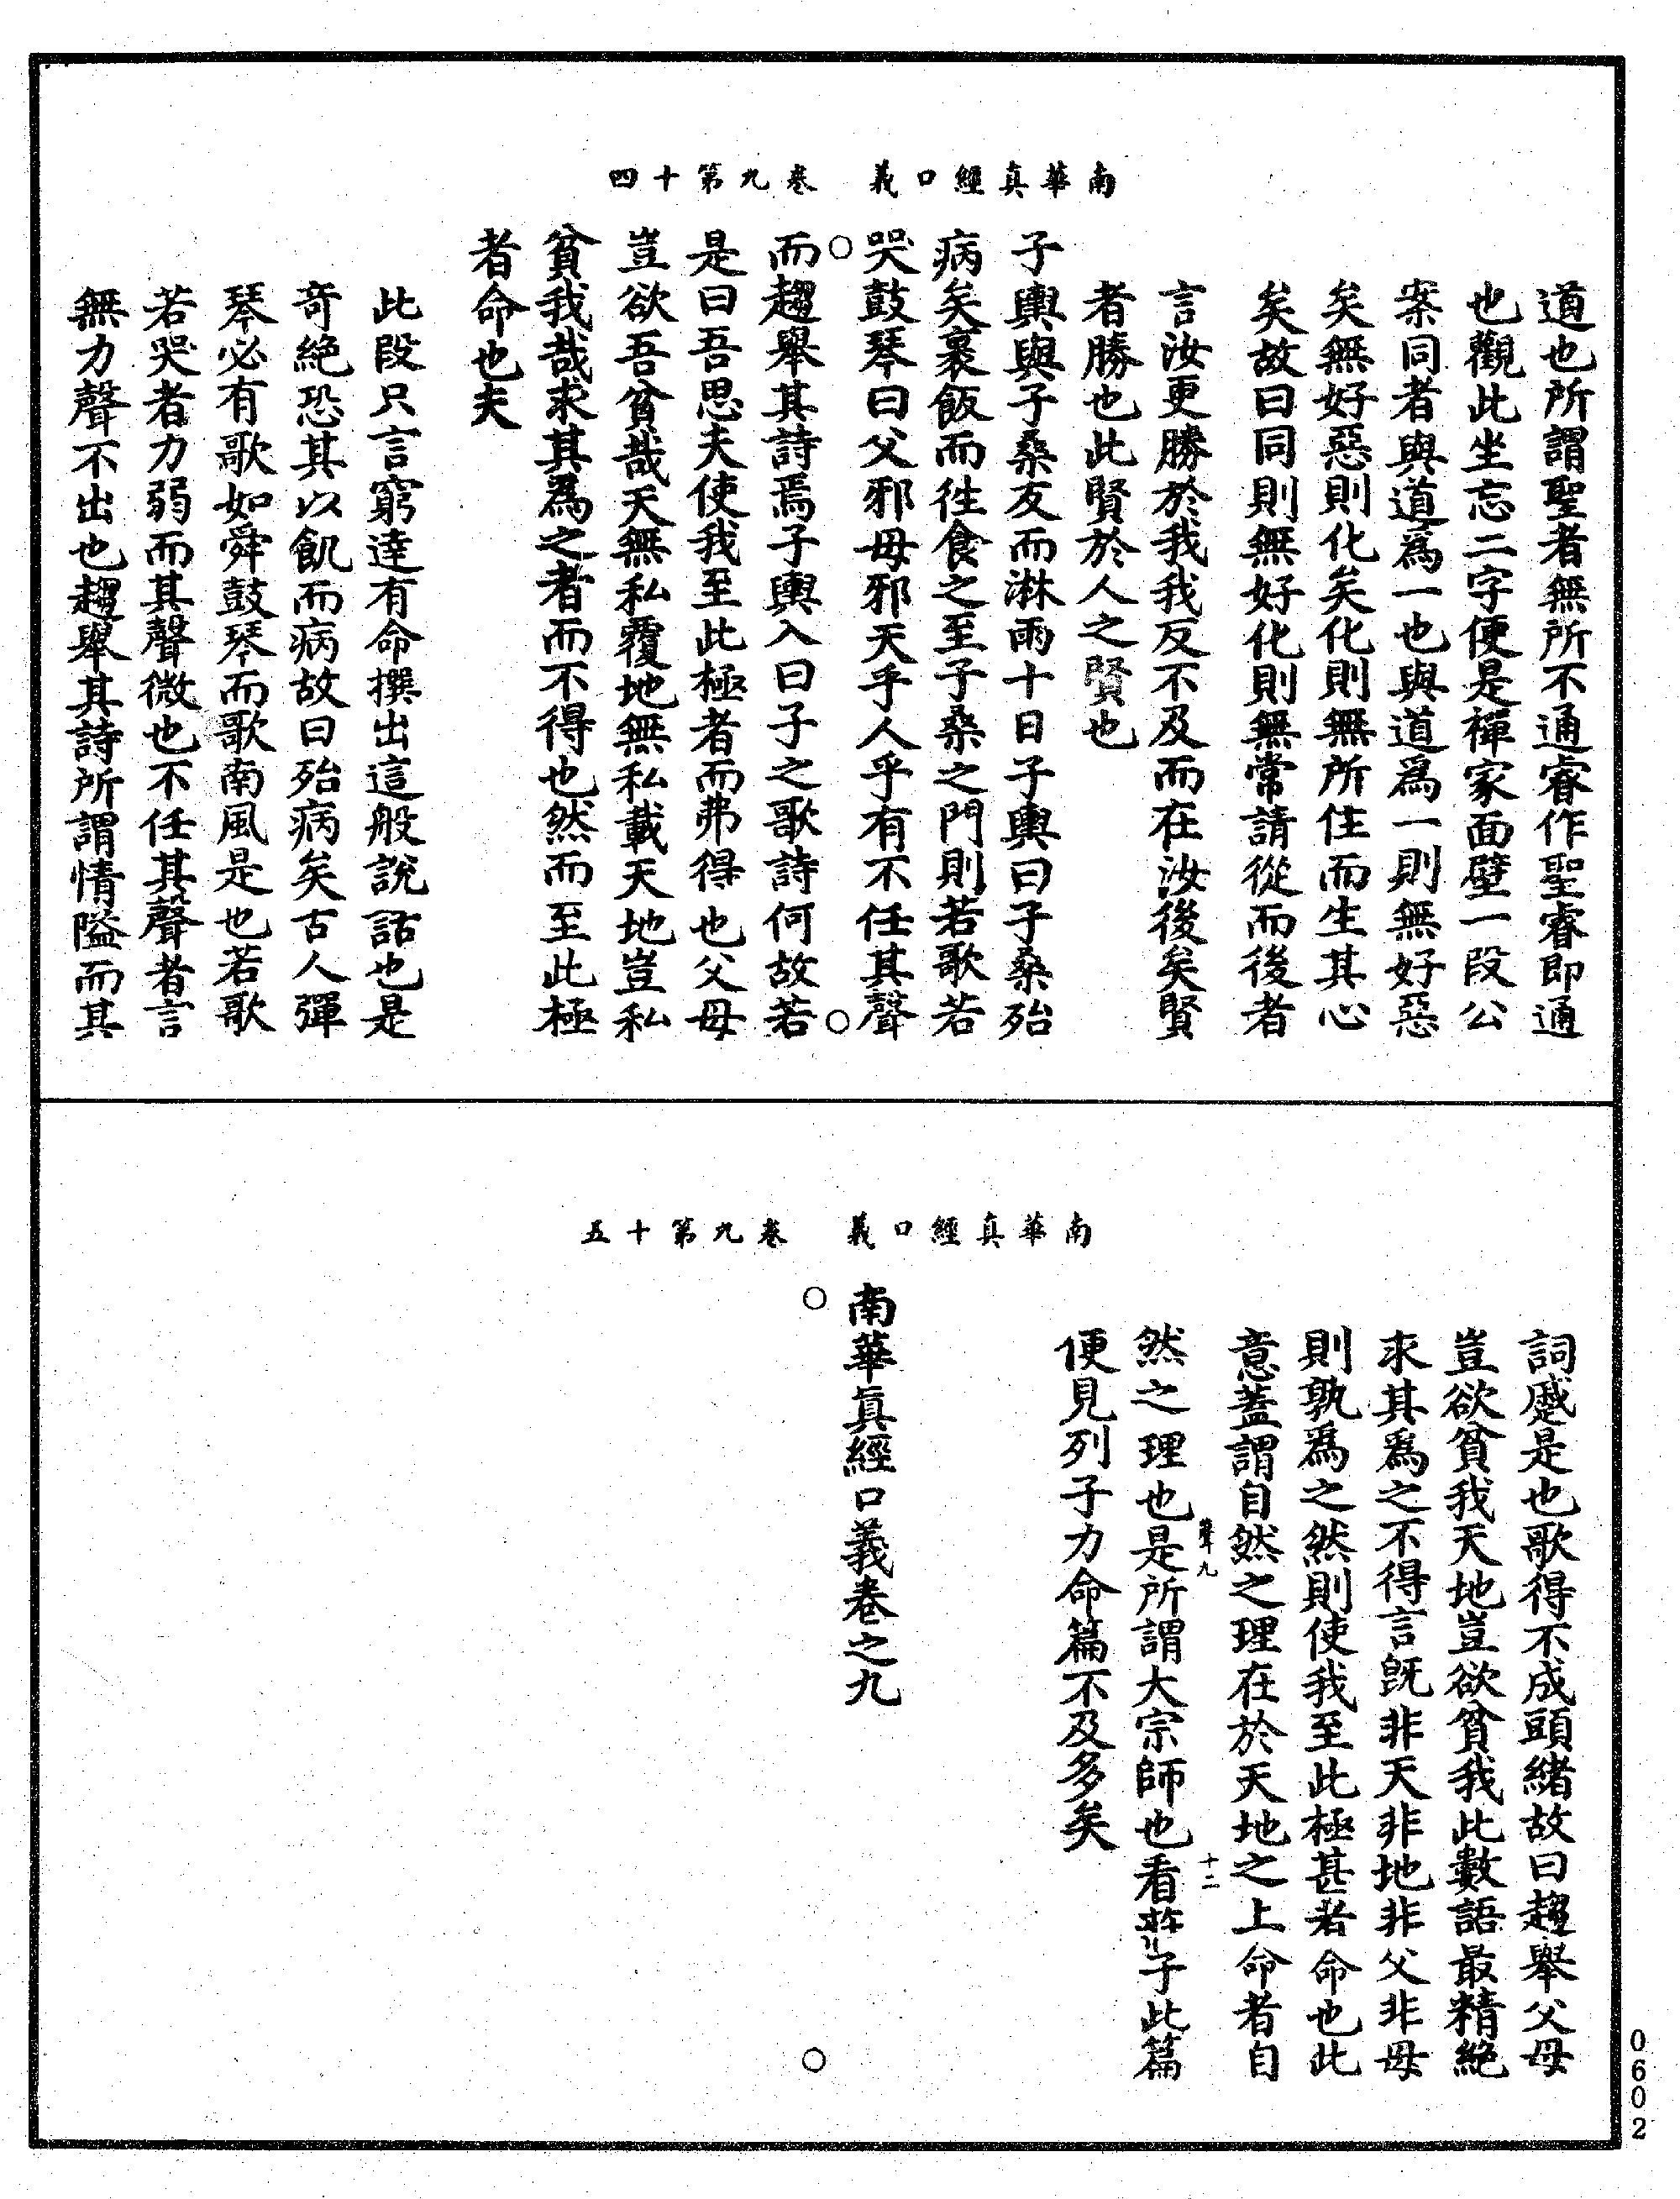 南華真經口義　卷九第十四
道也所謂聖者無所不通睿作聖睿即通
也觀此坐忘二字便是禪家面壁一段公
案同者與道爲一也與道爲一則無好惡
矣無好惡則化矣化則無所住而生其心
矣故曰同則無好化則無常請從而後者
言汝更勝於我我反不及而在汝後矣賢
者勝也此賢於人之賢也
子輿與子桑友而淋雨十日子輿曰子桑殆
病矣裹飯而往食之至子桑之門則若歌若
哭鼓琴曰父邪母邪天乎人乎有不任其聲
而趨舉其詩焉子輿入曰子之歌詩何故若
是曰吾思夫使我至此極者而弗得也父母
豈欲吾貧哉天無私覆地無私載天地豈私
貧我哉求其爲之者而不得也然而至此極
者命也夫
此段只言窮達有命撰出這般說話也是
奇絕恐其以飢而病故曰殆病矣古人彈
琴必有歌如舜鼓琴而歌南風是也若歌
若哭者力弱而其聲微也不任其聲者言
無力聲不出也趨舉其詩所謂情隘而其
南華真經口義　卷九第十五
詞蹙是也歌得不成頭緒故曰趨舉父母
豈欲貧我天地豈欲貧我此數語最精絕
求其爲之不得言旣非天非地非父非母
則孰爲之然則使我至此極甚者命也此
意蓋謂自然之理在於天地之上命者自
然之理也是所謂大宗師也看莊子此篇
便見列子力命篇不及多矣
九
十二
南華眞經口義卷之九
0602